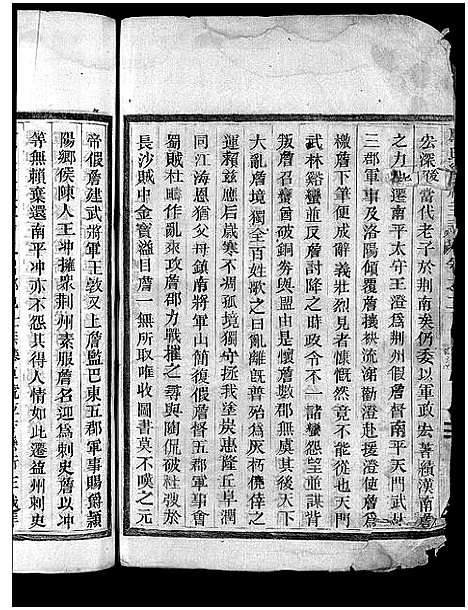 宏深後當代老子於荆南矣仍委以軍政宏著績漢南詹
之力也遷南平太守王澄爲荆州假詹督南平天門武林
三郡軍事及洛陽傾覆詹攘袂流涕勸澄赴援澄使詹爲
檄詹下筆便成辭義壯烈見者慷慨然竟不能從也天門
武林谿蠻並反詹討降之時政令不一諸蠻怨望並謀背
叛詹召蠻酋破銅劵與盟由是懷詹數郡無虞其後天下
大亂詹境獨全百姓歌之曰亂離旣普殆爲灰朽僥倖之
運賴茲應后歲寒不凋孤境獨守拯我塗炭惠隆丘阜潤
同江海恩猶父母鎮南將軍山簡復假詹五郡軍事會
蜀賊杜疇作亂來攻詹郡力戰摧之尋與陶侃破杜弢於
長沙賊中金寶溢目詹一無所取唯收圖書莫不嘆之元
帝假詹建武將軍王敦又上詹監巴東五郡軍事賜爵潁
陽鄉侯陳人王冲擁衆荆州素服詹名迎爲刺史詹以冲
等無賴棄還南平冲亦不怨其得人情如此遷益州刺史